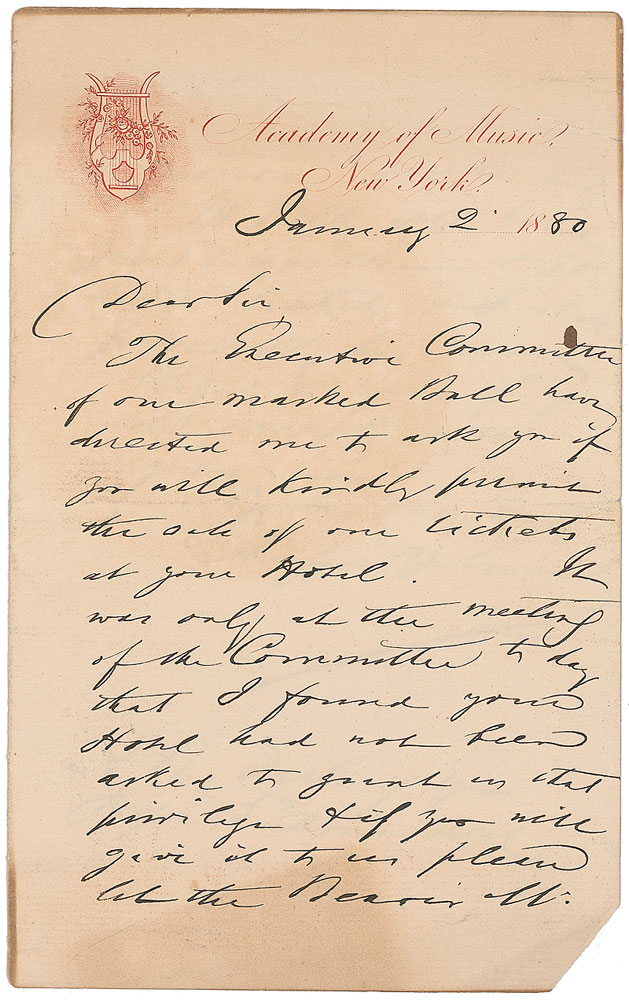 Academy of Music,
New York,
January 2 1880
Dear Sir,
The Executive Committee
of our masked Ball have
directed me to ask you if
you will kindly permit
the sale of our tickets
at your Hotel. It
was only at the meeting
of the Committee to day
that I found your
Hotel had not been
asked to grant us that
privilege & if you will
give it to us please
let the Bearer Mr.